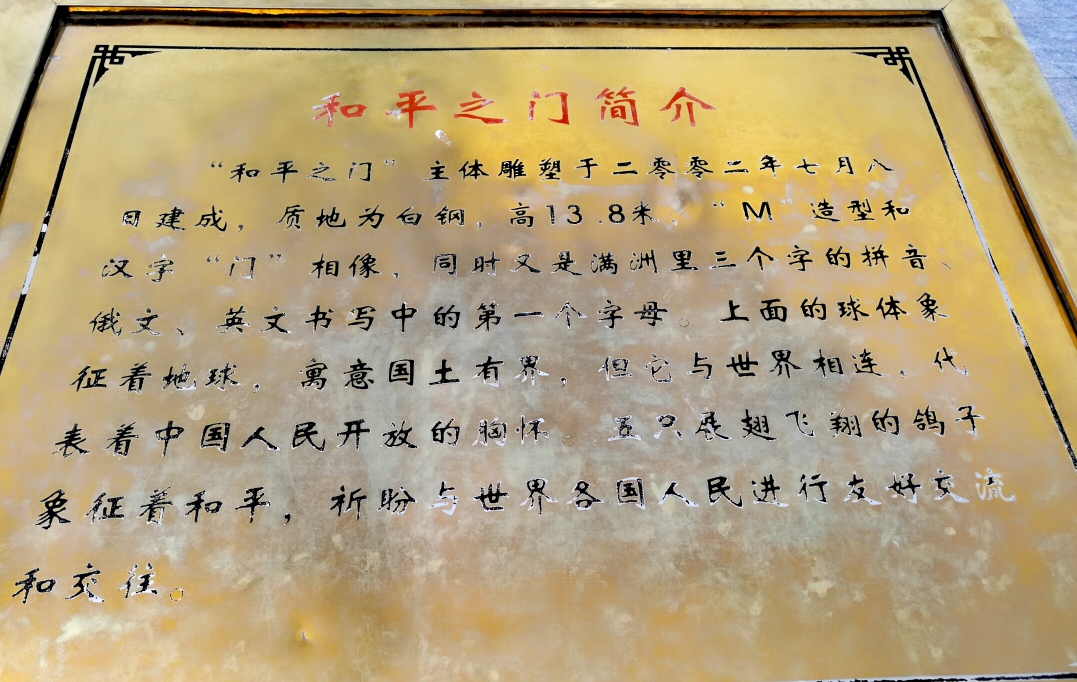 和平之门简介
“和平之门”主体雕塑于二零零二年七月八
日建成，质地为白钢，高13.8米，“M”造型和
汉字“门”相像，同时又是满洲里三个字的拼音、
俄文、英文书写中的第一个字母。上面的球体象
征着地球，寓意国土有界，但它与世界相连，代
表着中国人民开放的胸怀。五只展翅飞翔的鸽子
象征着和平，祈盼与世界各国人民进行友好交流
和交往。